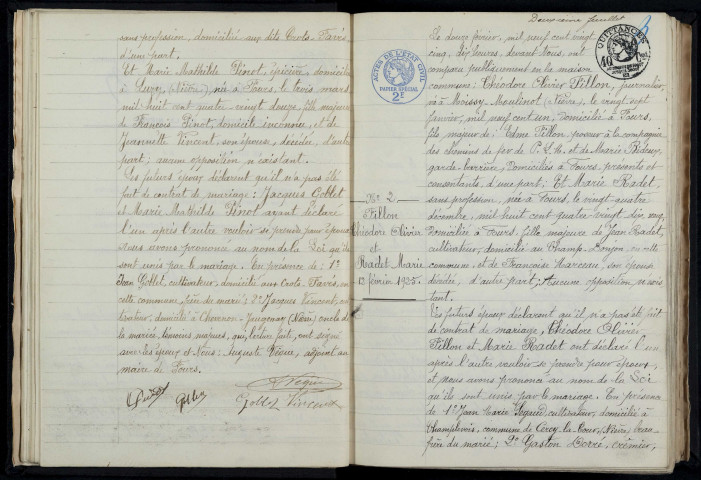 sans profession, domiciliée aux dits Crots-Favris
d'une part.
Et Marie Mathilde Pinot, épicière, domiciliée
à Luzy (Nièvre) née à Fours, le trois mars
mil huit cent quatre-vingt douze, fille majeure
de François Pinot, domicile inconnu, et de
Jeannette Vincent, son épouse, décédée, d'autre
part; aucune opposition n'existant.
Les futurs époux déclarent qu'il n'a pas été
fait de contrat de mariage; Jacques Gollet
et Marie Mathilde Pinot ayant déclaré
l'un après l'autre vouloir se prendre pour époux
Nous avons prononcé au nom de la Loi qu'ils
sont unis par le mariage. En présence de: 1°
Jean Gollet, cultivateur, domicilié aux Crots-Favris, en
cette commune, frère du marié; 2° Jacques Vincent, cul-
tivateur, domicilié à (Nièvre) oncle de
la mariée, témoins majeurs, qui, lecture faite, ont signé
avec les époux et Nous: Auguste adjoint au
maire de Fours.
Pinot Gollet
Gollet Vincent
Deuxième feuillet
ACTES DE L'ETAT CIVIL
PAPIER SPECIAL
2F
QUITTANCES
N° 2
Fillon
Théodore Olivier
et
Radet Marie
12 février 1925.
Le douze février, mil neuf cent vingt
cinq, dix heures, devant Nous, ont
comparu publiquement en la maison
commune: Théodore Olivier Fillon, journalier,
né à Moissy-Moulinot (Nièvre), le vingt sept
janvier, mil neuf cent un; Domicilié à Fours,
fils majeur de: Edme Fillon, poseur à la compagnie
des chemins de fer de P.L.M. et de Marie
garde-barrière, domiciliés à Fours, présents et
consentants, d'une part; Et Marie Radet
sans profession, née à Fours, le vingt quatre
décembre, mil huit cent quatre vingt dix
domiciliée à Fours, fille majeure de Jean Radet,
cultivateur, domicilié au Champ-Donjon, en cette
commune, et de Françoise Marceau, son épouse
décédée, d'autre part; Aucune opposition n'exis-
tant.
Les futurs époux déclarant qu'il n'a pas été fait
de contrat de mariage, Théodore Olivier
Fillon et Marie Radet ont déclaré l'un
après l'autre vouloir se prendre pour époux,
et nous avons prononcé au nom de la Loi
qu'ils sont unis par le mariage. En présence
de: 1° Jean Marie cultivateur, domicilié à
Champlevois, commune de Cercy-la-Tour, (Nièvre), beau-
frère du marié; 2° Gaston crémier,